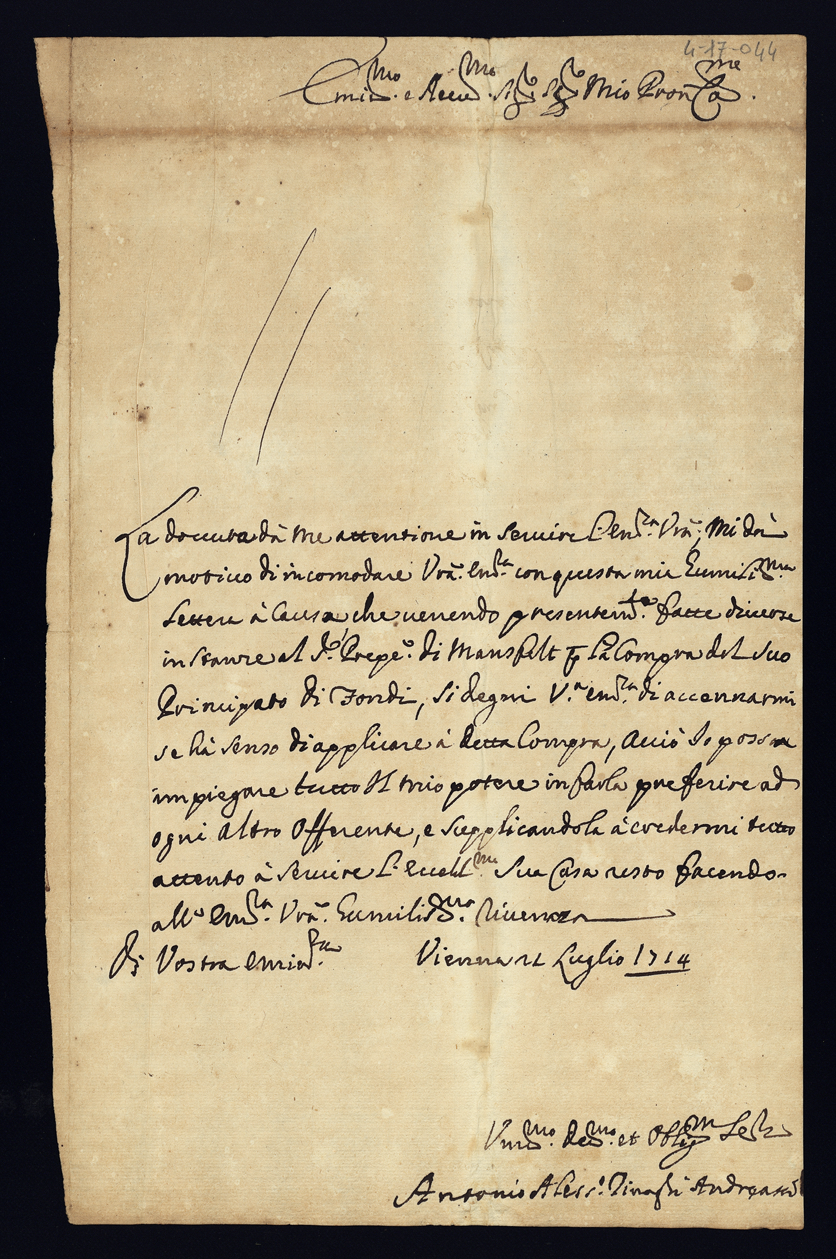 4-17-044
Emin.mo e Reu.mo Sig.r Sig.r Mio Pron Col.me
La douuta dà me attentione in seruire L'em.za Vrã, Mi dà
motiuo di incomodare Vrã. em.za con questa mia Humiliss.ma
Lettera à Causa, che uenendo presentem.te fatte diuerse
instanze al S.r Prepe. di Mansfelt p La Compra del suo
Principato di Fondi, si degni V.a em.za di accennarmi
se hà senso di applicare à detta Compra, acciò Io possa
impiegare tutto Il mio potere in farla preferire ad
ogni altro Offerente, e supplicandola à credermi tutto
attento à seruire L'eccell.ma Sua Casa resto facendo
all'em.za Vrã. Humiliss.ma Riuerenza
Di Vostra emin.za Vienna 21 Luglio 1714
Vm.mo De.mo et Oblig.mo Se.r
Antonio Aless.o